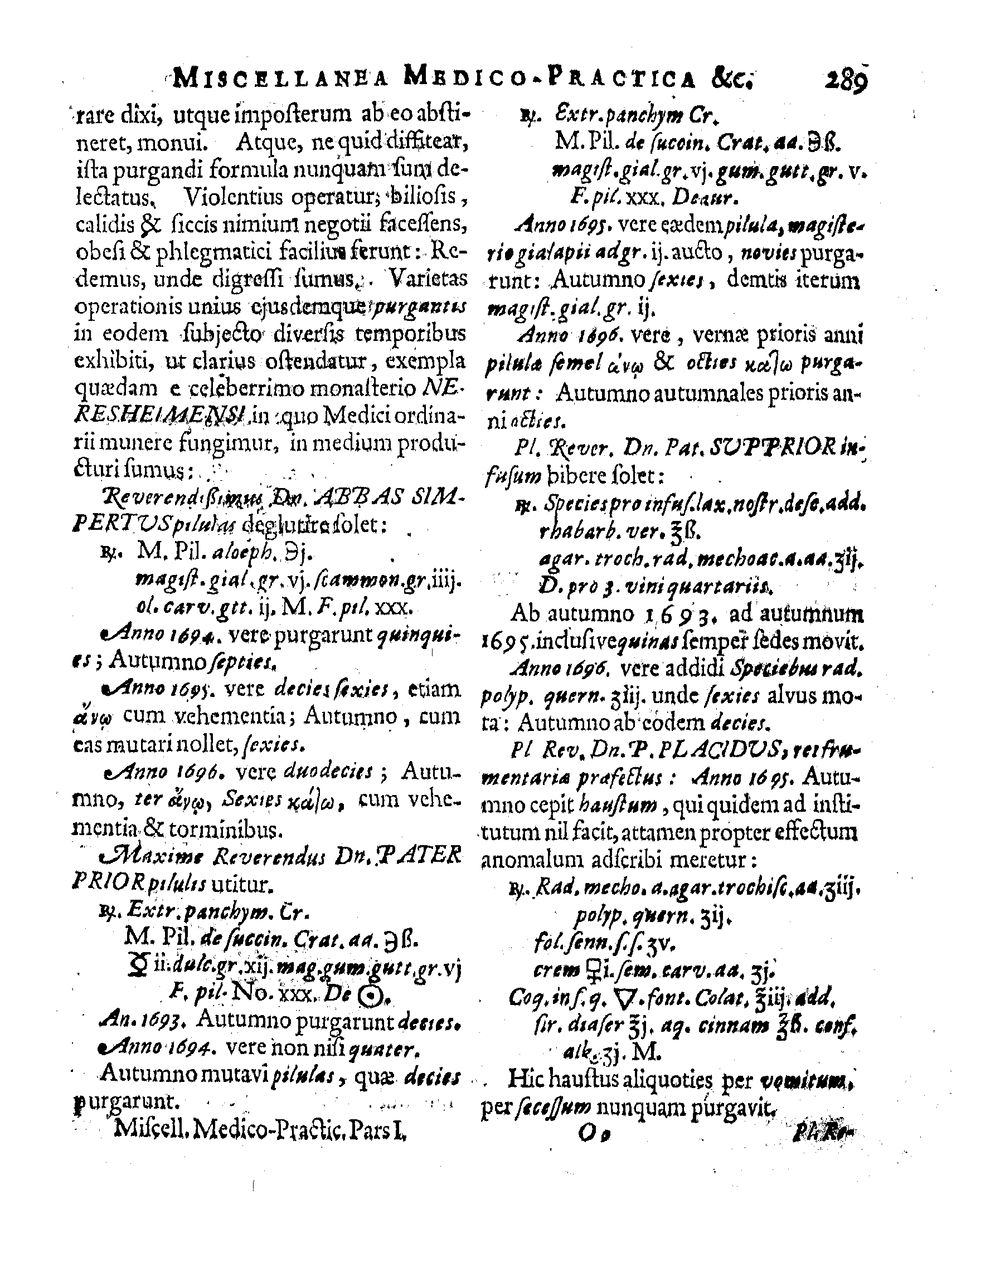 MISCELLANEA MEDICO-PRACTICA &c. 289
rare dixi, utque impoſterum ab eo abſti-
neret, monui. Atque, ne quid diffitear,
iſta purgandi formula nunquam ſum de-
lectatus. Violentius operatur; bilioſis,
calidis & ſiccis nimium negotii faceſſens,
obeſi & phlegmatici facilius ferunt: Re-
demus, unde digreſſi ſumus. Varietas
operationis unius ejusdemque purgantis
in eodem ſubjecto diverſis temporibus
exhibiti, ut clarius oſtendatur, exempla
quædam e celeberrimo monaſterio NE-
RESHEIMENSI in quo Medici ordina-
rii munere fungimur, in medium produ-
cturi ſumus:
Reverendiſſimus Dn. ABBAS SIM-
PERTUS pilulas deglutire ſolet:
℞. M. Pil. aloeph. ℈j.
magiſt. gial. gr. vj. ſcammon. gr. iiij.
ol. carv. gtt. ij. M. F. pil. xxx.
Anno 1694. vere purgarunt quinqui-
es; Autumno ſepties.
Anno 1695. vere decies ſexies, etiam
ἄνω cum vehementia; Autumno, cum
eas mutari nollet, ſexies.
Anno 1696. vere duodecies; Autu-
mno, ter ἄνω, Sexies κάτω, cum vehe-
mentia & torminibus.
Maxime Reverendus Dn. PATER
PRIOR pilulis utitur.
℞. Extr. panchym. Cr.
M. Pil. de ſuccin. Crat. aa. ℈ß.
☿ii. dulc. gr. xij. mag. gum. gutt. gr. vj
F. pil. No. xxx. De ☉.
An. 1693. Autumno purgarunt decies.
Anno 1694. vere non niſi quater.
Autumno mutavi pilulas, quæ decies
purgarunt.
Miſcell. Medico-Practic. Pars I.
℞. Extr. panchym Cr.
M. Pil. de ſuccin. Crat. aa. ℈ß.
magiſt. gial. gr. vj. gum. gutt. gr. v.
F. pil. xxx. Deaur.
Anno 1695. vere eædem pilulæ, magiſte-
rio gialapii ad gr. ij. aucto, novies purga-
runt: Autumno ſexies, demtis iterum
magiſt. gial. gr. ij.
Anno 1696. vere, vernæ prioris anni
pilulæ ſemel ἄνω & octies κάτω purga-
runt: Autumno autumnales prioris an-
ni octies.
Pl. Rever. Dn. Pat. SUPPRIOR in-
fuſum bibere ſolet:
℞. Species pro infuſ. lax. noſtr. deſc. add.
rhabarb. ver. ʒß.
agar. troch. rad. mechoac. a. aa. ʒij.
D. pro 3. vini quartariis.
Ab autumno 1693. ad autumnum
1695. incluſive quinas ſemper ſedes movit.
Anno 1696. vere addidi Speciebus rad.
polyp. quern. ʒiij. unde ſexies alvus mo-
ta: Autumno ab eodem decies.
Pl Rev. Dn. P. PLACIDUS, rei fru-
mentariæ præfectus: Anno 1695. Autu-
mno cepit hauſtum, qui quidem ad inſti-
tutum nil facit, attamen propter effectum
anomalum adſcribi meretur:
℞. Rad. mecho. a. agar. trochiſc. aa. ʒiij.
polyp. quern. ʒij.
fol. ſenn. ſ. ſ. ʒv.
crem 🜿i. ſem. carv. aa. ʒj.
Coq. in ſ. q. ▽. font. Colat. ℥iij. add.
ſir. diaſer ℥j. aq. cinnam ℥ß. conf.
alk. ʒj. M.
Hic hauſtus aliquoties per vomitum,
per ſeceſſum nunquam purgavit.
Oo Pl. Re-